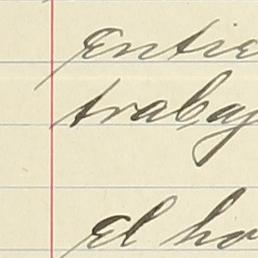 Entie
trabaj
El ho